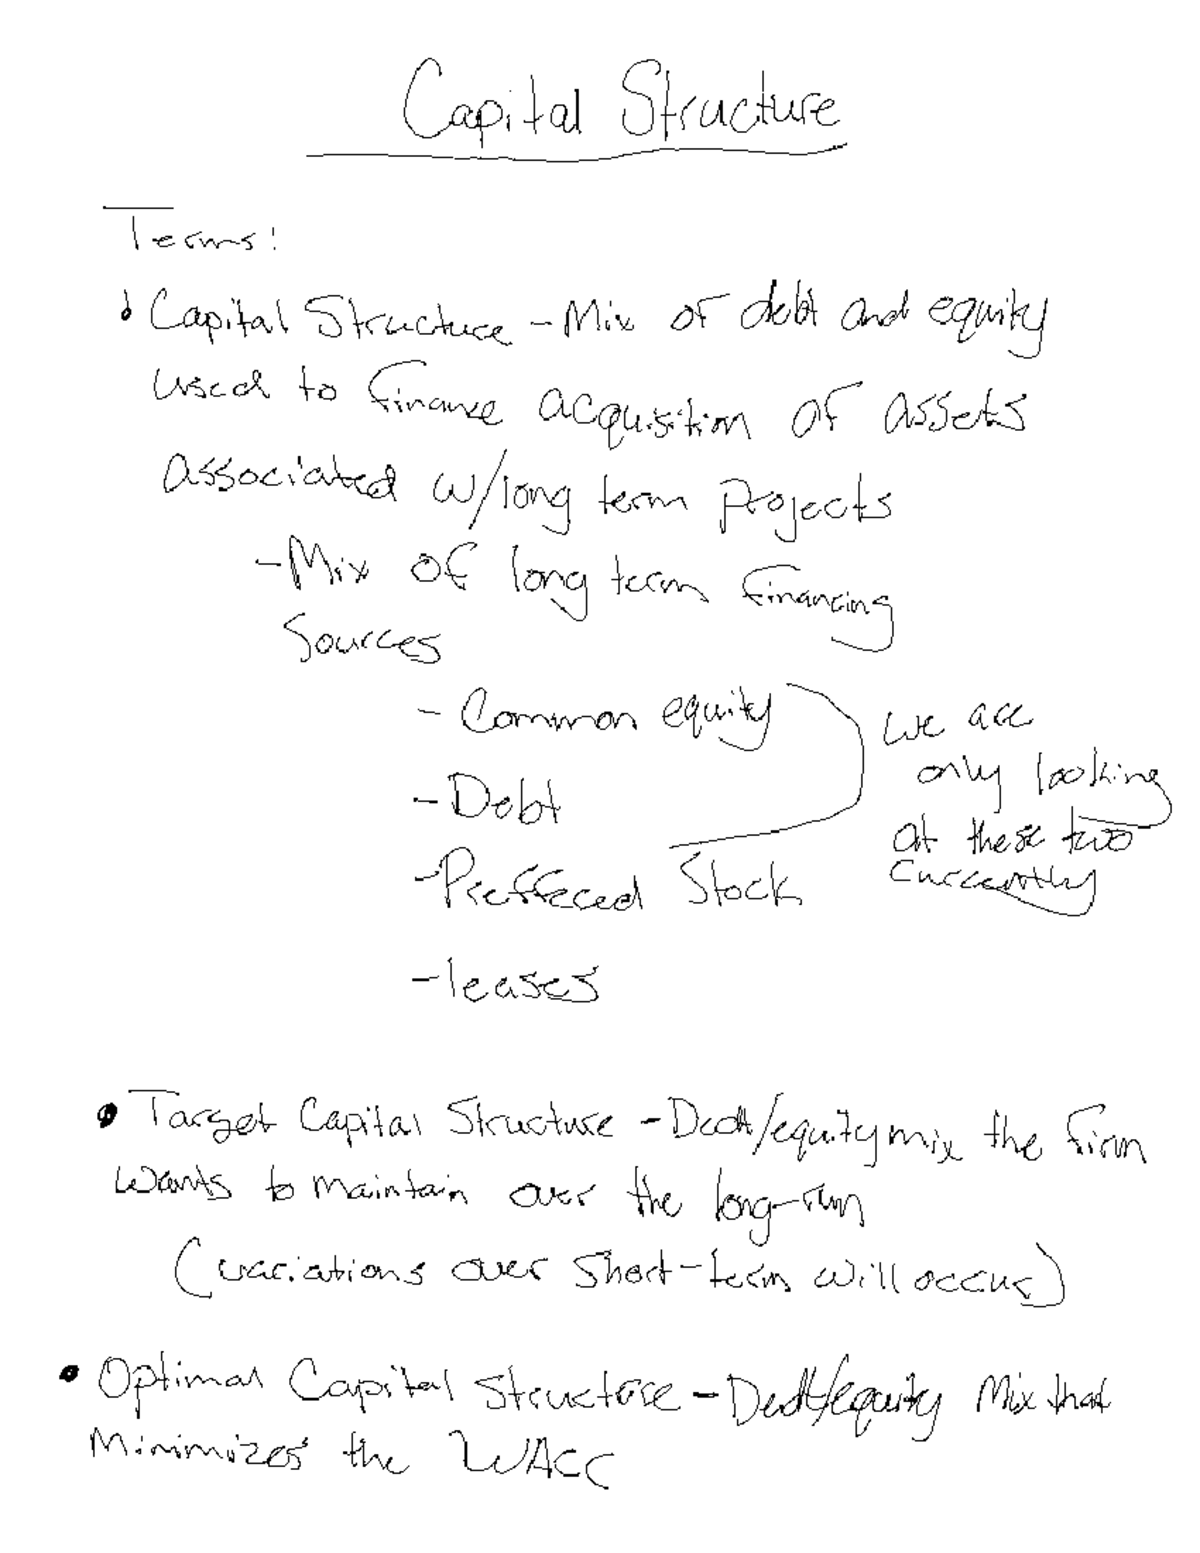 Capital Structure
Terms:
• Capital Structure - Mix of debt and equity
used to finance acquisition of assets
associated w/long term projects
- Mix of long term financing
Sources
- Common equity
- Debt
we are
only looking
at these two
currently
- Preffered Stock
- leases
• Target Capital Structure - Dedt/equity mix the firm
wants to maintain over the long-run
(variations over short-term will occur)
• Optimal Capital Structure - Dedt/equity Mix that
Minimizes the WACC